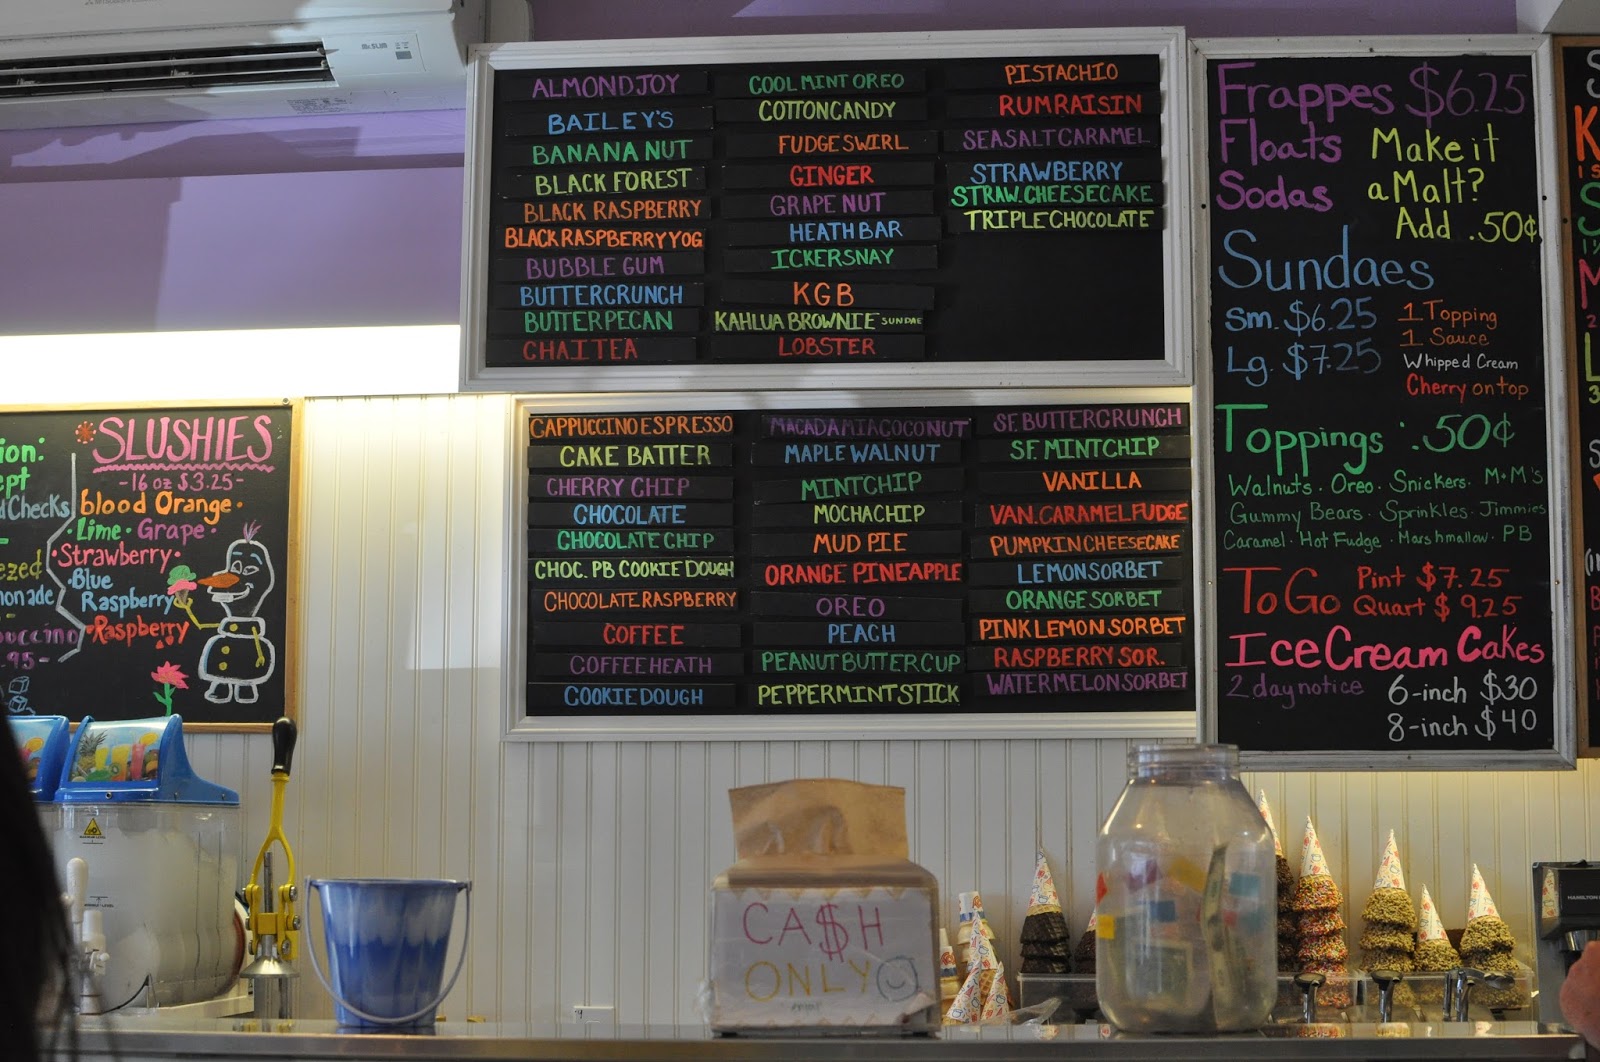 MR.SLIM
ALMOND JOY
BAILEY'S
BANANA NUT
BLACK FOREST
BLACK RASPBERRY
BLACK RASPBERRY YOG
BUBBLE GUM
BUTTERCRUNCH
BUTTER PECAN
CHAI TEA
COOL MINT OREO
COTTON CANDY
FUDGE SWIRL
GINGER
GRAPE NUT
HEATH BAR
ICKERSNAY
KGB
KAHLUA BROWNIE SUNDAE
LOBSTER
PISTACHIO
RUM RAISIN
SEA SALT CARAMEL
STRAWBERRY
STRAW. CHEESECAKE
TRIPLE CHOCOLATE
CAPPUCCINO ESPRESSO
CAKE BATTER
CHERRY CHIP
CHOCOLATE
CHOCOLATE CHIP
CHOC. PB COOKIE DOUGH
CHOCOLATE RASPBERRY
COFFEE
COFFEE HEATH
COOKIE DOUGH
MACADAMIA COCONUT
MAPLE WALNUT
MINT CHIP
MOCHA CHIP
MUD PIE
ORANGE PINEAPPLE
OREO
PEACH
PEANUT BUTTER CUP
PEPPERMINT STICK
SF. BUTTERCRUNCH
SF. MINT CHIP
VANILLA
VAN. CARAMEL FUDGE
PUMPKIN CHEESECAKE
LEMON SORBET
ORANGE SORBET
PINK LEMON SORBET
RASPBERRY SOR.
WATERMELON SORBET
Frappes $6.25
Floats
Sodas
Make it
a Malt?
Add .50¢
Sundaes
sm. $6.25
Lg. $7.25
1 Topping
1 Sauce
Whipped Cream
Cherry on top
Toppings : .50¢
Walnuts · Oreo · Snickers · M+M's
Gummy Bears · Sprinkles · Jimmies
Caramel · Hot Fudge · Marshmallow · PB
To Go
Pint $7.25
Quart $9.25
Ice Cream Cakes
2 day notice
6-inch $30
8-inch $40
ion:
ept
d Checks
ezed
onade
uccino
.95-
SLUSHIES
-16 oz $3.25-
blood Orange ·
· Lime · Grape ·
· Strawberry ·
· Blue
Raspberry
· Raspberry
CA$H
ONLY